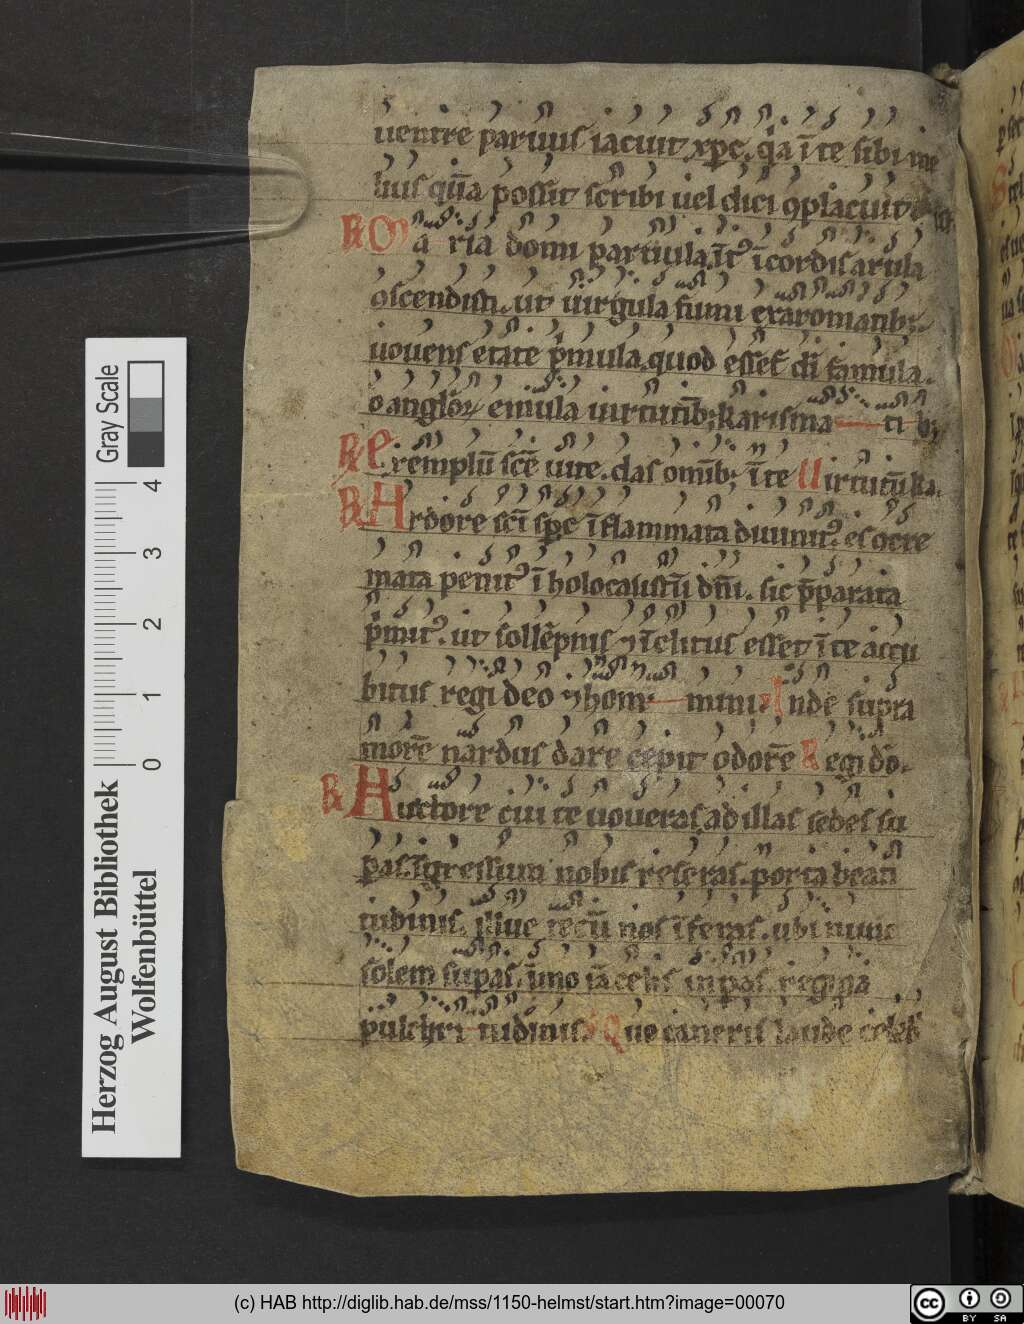 uentre paruus iacuit xp̄c. q̇a ī te sibi me
lius qu̅a possit scribi uel dici ꝯplacuit
℟ Maria domū partiula. īt᷒ ī cordis arula
ascendisti. ut uirgula fumi ex aromatibꝫ
uouens etate p̄mula. quod esses dī famula.
o angloꝝ emula uirtutibꝫ karisma ti bꝫ
℟ Exemplū scē uite. das om̄ibꝫ ī te Uirtutū ka.
℟ Ardore scī spc ī flammata diuinit᷒ es ꝯcre
mata penit᷒ ī holocaustū dn̄i. sic p̄parata
p̄mit᷒. ut sollēpnis ⁊ īclitus esset ī te accu
bitus regi deo ⁊ hom mini Inde supra
morē nardus dare cepit odorē Regi dō.
℟ Auctore cui te uoueras ad illas sedes su
pas. īgressum nobis reseras. porta beati
tudinis. illuc tecū nos īferas. ubi nunc
solem supas. īmo iā celis inpas. regina
pulchri tudinis Quo caneris laude celeb
Herzog August Bibliothek
Wolfenbüttel
Gray Scale
0 1 2 3 4
(c) HAB http://diglib.hab.de/mss/1150-helmst/start.htm?image=00070
cc BY SA